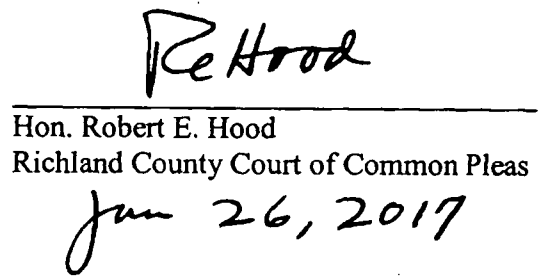 Re Hood
Hon. Robert E. Hood
Richland County Court of Common Pleas
Jan 26, 2017